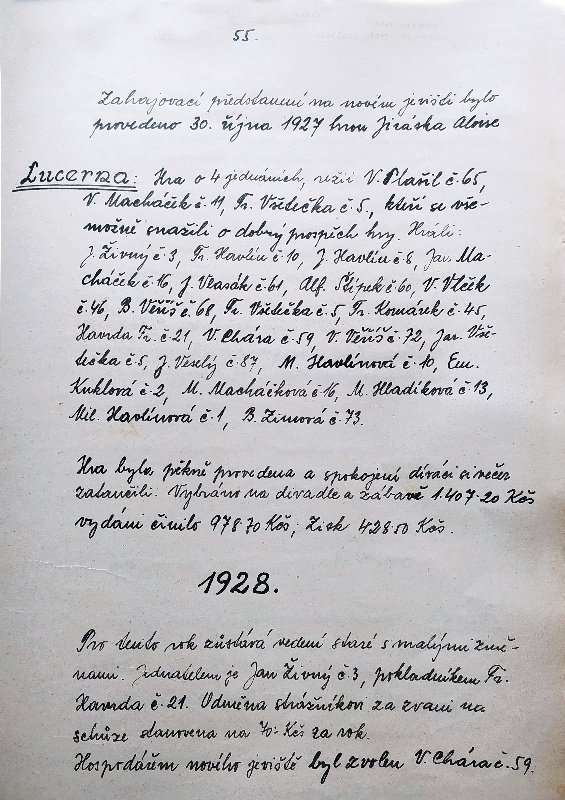 55.
Zahajovací představení na novém jevišti bylo
provedeno 30. října 1927 hrou Jiráska Aloise
Lucerna: Hra o 4 jednáních, režií V. Plašil č. 65,
V. Macháček č. 11, Fr. Všetečka č. 5., kteří se vše-
možně snažili o dobrý prospěch hry. Hráli:
J. Živný č. 3, Fr. Havlín č. 10, J. Havlín č. 8, Jar. Ma-
cháček č. 16, J. Vlasák č. 61, Alf. Štípek č. 60, V. Vlček
č. 46, B. Veříš č. 68, Fr. Všetečka č. 5, Fr. Komárek č. 45,
Havrda Fr. č. 21, V. Chára č. 59, V. Veříš č. 72, Jar. Vše-
tečka č. 5, J. Veselý č. 87, M. Havlínová č. 10, Em.
Kuklová č. 2, M. Macháčková č. 16, M. Hladíková č. 13,
Mil. Havlínová č. 1, B. Zimová č. 73.
Hra byla pěkně provedena a spokojení diváci si večer
zatančili. Vybráno na divadle a zábavě 1.407·20 Kčs
vydání činilo 978 70 Kčs; Zisk 428 50 Kčs.
1928.
Pro tento rok zůstává vedení staré s malými změ-
nami. Jednatelem je Jan Živný č. 3, pokladníkem Fr.
Havrda č. 21. Odměna strážníkovi za zvaní na
schůze stanovena na 70·- Kčs za rok.
Hospodářem nového jeviště byl zvolen V. Chára č. 59.